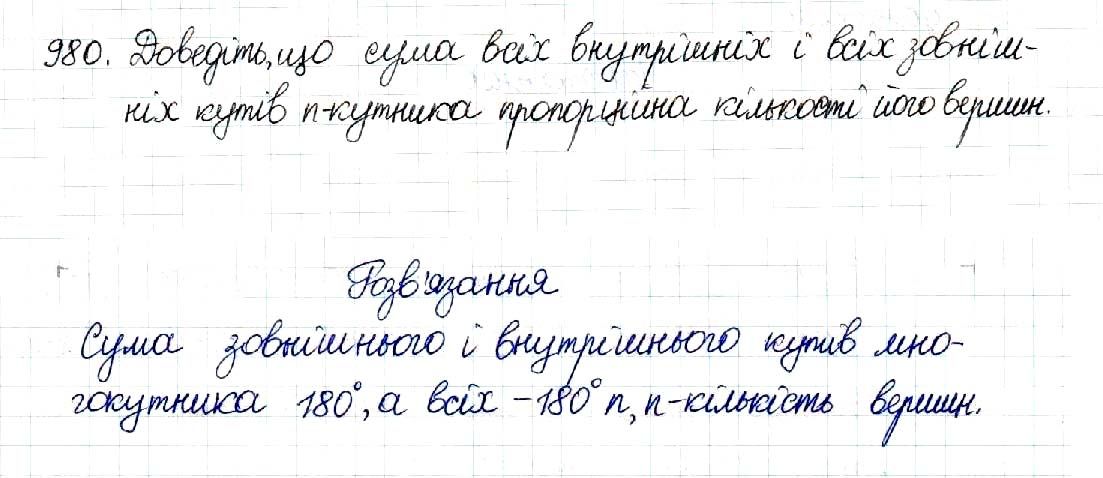 980. Доведіть, що сума всіх внутрішніх і всіх зовніш-
ніх кутів n-кутника пропорційна кількості його вершин.
Розв'язання
Сума зовнішнього і внутрішнього кутів мно-
гокутника 180°, а всіх – 180° n, n – кількість вершин.